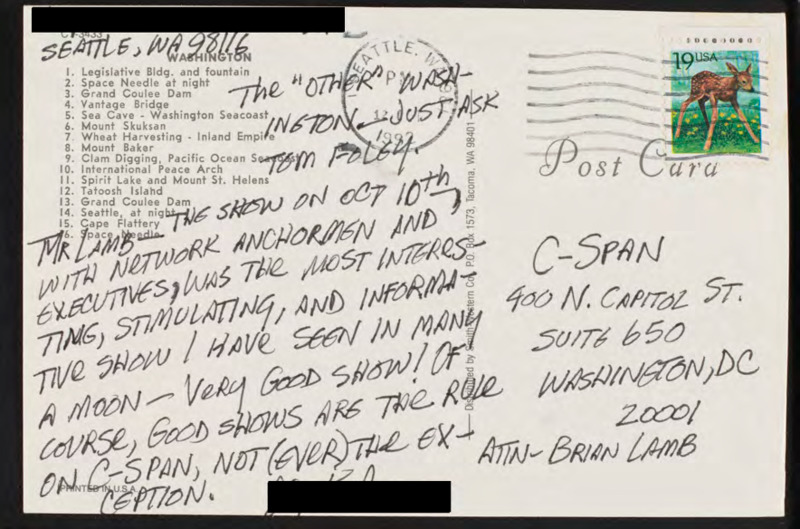 SEATTLE, WA 98116
WASHINGTON
1. Legislative Bldg. and fountain
2. Space Needle at night
3. Grand Coulee Dam
4. Vantage Bridge
5. Sea Cave - Washington Seacoast
6. Mount Skuksan
7. Wheat Harvesting - Inland Empire
8. Mount Baker
9. Clam Digging, Pacific Ocean Seacoast
10. International Peace Arch
11. Spirit Lake and Mount St. Helens
12. Tatoosh Island
13. Grand Coulee Dam
14. Seattle, at night
15. Cape Flattery
16. Space Needle
THE "OTHER" WASH-
INGTON - JUST ASK
TOM FOLEY.
MR LAMB - THE SHOW ON OCT 10th,
WITH NETWORK ANCHORMEN AND
EXECUTIVES, WAS THE MOST INTERES-
TING, STIMULATING, AND INFORMA-
TIVE SHOW I HAVE SEEN IN MANY
A MOON - VERY GOOD SHOW! OF
COURSE, GOOD SHOWS ARE THE RULE
ON C-SPAN, NOT (EVER) THE EX-
CEPTION.
PRINTED IN U.S.A.
SEATTLE, WA
PM
1992
Distributed by Smith Western Co., P.O. Box 1573, Tacoma, WA 98401
19 USA
Post Card
C-SPAN
400 N. CAPITOL ST.
SUITE 650
WASHINGTON, DC
20001
ATTN- BRIAN LAMB